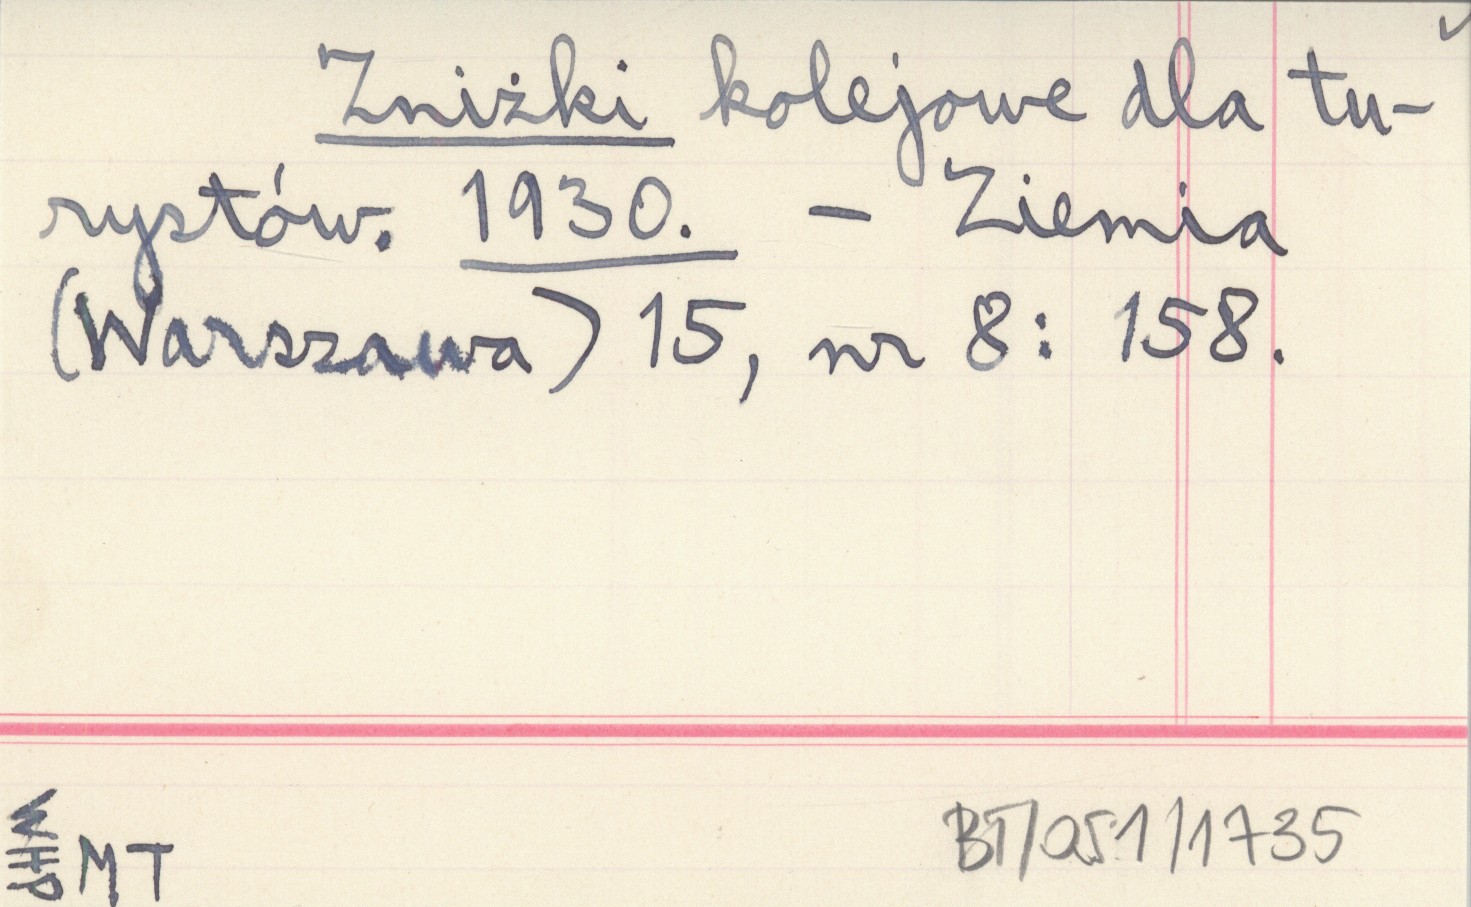 Zniżki kolejowe dla tu-
rystów. 1930. – Ziemia
(Warszawa) 15, nr 8: 158.
WHP
MT
BT/051/1735